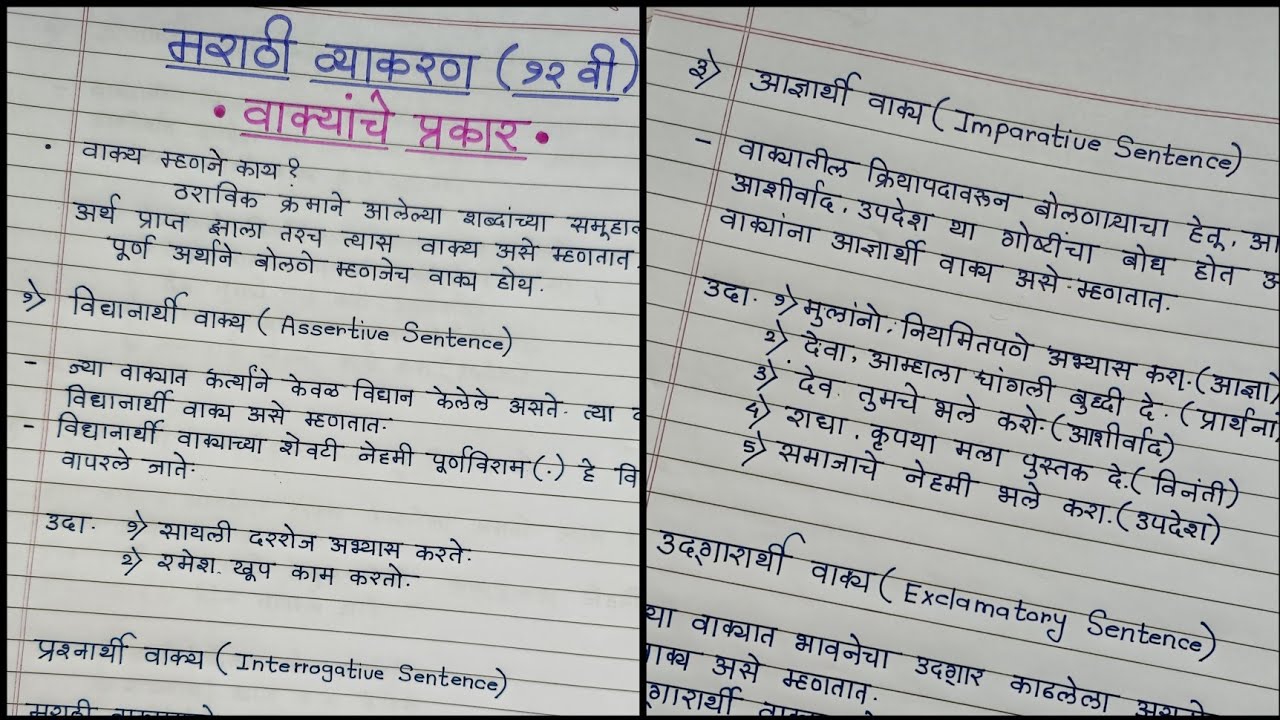 मराठी व्याकरण (१२ वी)
• वाक्यांचे प्रकार •
• वाक्य म्हणने काय?
ठराविक क्रमाने आलेल्या शब्दांच्या
अर्थ प्राप्त झाला तरच त्यास वाक्य असे म्हणतात.
पूर्ण अर्थाने बोलणे म्हणनेच वाक्य होय.
१) विधानार्थी वाक्य (Assertive Sentence)
- ज्या वाक्यात कर्त्याने केवळ विधान केलेले असते. त्या
विधानार्थी वाक्य असे म्हणतात.
- विधानार्थी वाक्याच्या शेवटी नेहमी पूर्णविराम (.) हे
वापरले जाते.
उदा. १) सायली दररोज अभ्यास करते.
२) रमेश. खूप काम करतो.
प्रश्नार्थी वाक्य (Interrogative Sentence)
३) आज्ञार्थी वाक्य (Imparative Sentence)
- वाक्यातील क्रियापदावरून बोलणाऱ्याचा हेतू,
आशीर्वाद, उपदेश या गोष्टींचा बोध होत
वाक्यांना आज्ञार्थी वाक्य असे म्हणतात.
उदा. १) मुलांनो, नियमितपणे अभ्यास करा. (आज्ञा)
२) देवा, आम्हाला चांगली बुध्दी दे. (प्रार्थना)
३) देव. तुमचे भले करो. (आशीर्वाद)
४) राधा, कृपया मला पुस्तक दे. (विनंती)
५) समाजाचे नेहमी भले करा. (उपदेश)
उद्गारार्थी वाक्य (Exclamatory Sentence)
वाक्यात भावनेचा उद्गार काढलेला
असे म्हणतात.